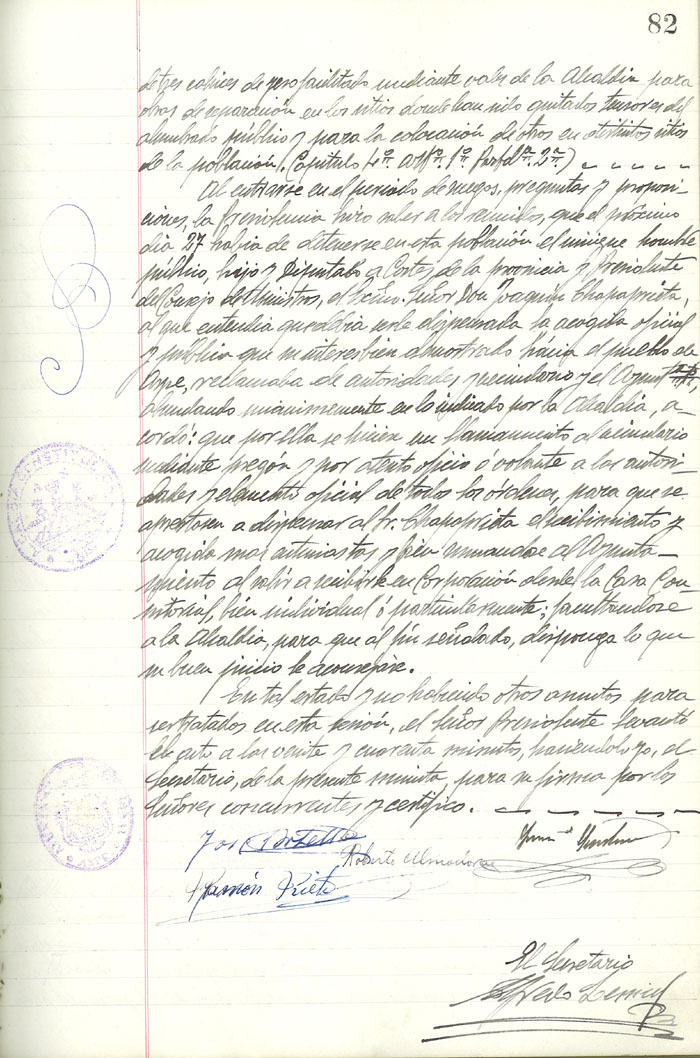 82
de tres cahices de yeso facilitado mediante vales de la Alcaldía para
obras de reparación en los sitios donde han sido quitados tensores del
alumbrado público y para la colocación de otros en distintos sitios
de la población. (Capítulo 4º Artº 1º Partdª 2ª)
Al entrarse en el periodo de ruegos, preguntas y proposi-
ciones, la Presidencia hizo saber a los reunidos, que el próximo
día 27 había de detenerse en esta población el insigne hombre
público, hijo y Diputado a Cortes de la provincia y Presidente
del Consejo de Ministros, el Excmo. Señor Don Joaquín Chapaprieta,
al que entendía que debía serle dispensada la acogida oficial
y pública que su interés bien demostrado hácia el pueblo de
Aspe, reclamaba de autoridades y vecindario y el Ayuntº
abundando unánimemente en lo indicado por la Alcaldía, a-
cordó: que por ella se hiciera un llamamiento al vecindario
mediante pregón y por atento oficio ó volante a las autori-
dades y elemento oficial de todos los órdenes, para que se
aprestasen a dispensar al Sr. Chapaprieta el recibimiento y
acogida más entusiastas y bien sumandose al Ayunta-
miento al salir a recibirle en Corporación desde la Casa Con-
sistorial, bien individual ó particularmente; facultandose
a la Alcaldía, para que al fin señalado, disponga lo que
su buen juicio le aconsejare.
En tal estado y no habiendo otros asuntos para
ser tratados en esta sesión, el Señor Presidente levantó
el acto a las veinte y cuarenta minutos, haciendolo yo, el
Secretario, de la presente minuta para su firma por los
Señores concurrentes y certifico.
José Botella
Roberto Almodovar
Ramón Prieto
El Secretario
Alfredo